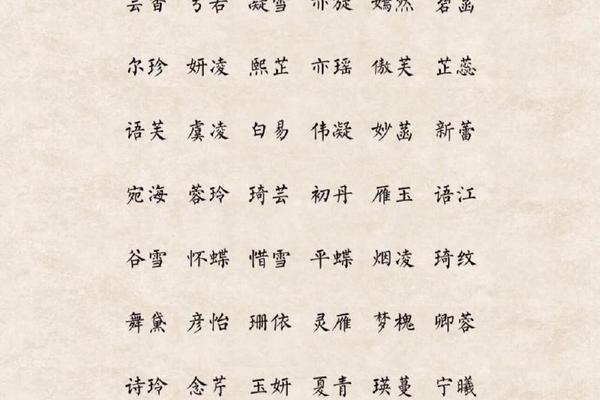 芸香 兮若 凝雪 亦旋 嫣然 碧菡
尔珍 妍凌 熙芷 亦瑶 傲芙 芷蕊
语芙 虞凌 白易 伟凝 妙菡 新蕾
宛海 蓉玲 琦芸 初丹 雁玉 语江
谷雪 怀蝶 惜雪 平蝶 烟凌 琦纹
舞黛 彦怡 珊依 灵雁 梦槐 卿蓉
诗玲 念芹 玉妍 夏青 瑛蔓 宁曦